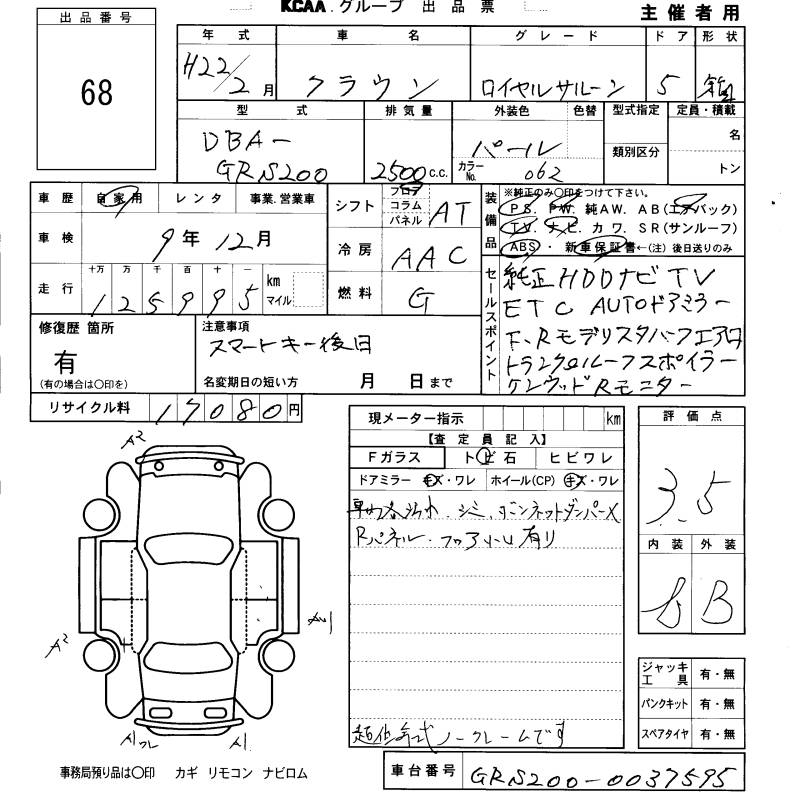 KCAA.グループ 出品票
主催者用
出品番号
68
年式 車名 グレード ドア 形状
H22/2月 クラウン ロイヤルサルーン 5 箱
型式 排気量 外装色 色替 型式指定 定員・積載
DBA-
GRS200
2500c.c.
パール
カラーNo. 062
類別区分
名
トン
車歴 自家用 レンタ 事業.営業車
車検 9年12月
走行 十万 万 千 百 十 一
125995 km マイル
シフト フロア コラム パネル AT
冷房 AAC
燃料 G
装備品
※純正のみ○印をつけて下さい。
PS. PW. 純AW. AB(エアバック)
TV. ナビ カワ. SR(サンルーフ)
ABS・新車保証書←(注)後日送りのみ
セールスポイント
純正HDDナビTV
ETC AUTOドアミラー
F、Rモデリスタハーフエアロ
トランク&ルーフスポイラー
ケンウッドRモニター
修復歴 箇所
有
(有の場合は○印を)
注意事項
スマートキー後日
名変期日の短い方 月 日まで
リサイクル料 17080円
現メーター指示 km
【査定員記入】
Fガラス トビ石 ヒビワレ
ドアミラー キズ・ワレ ホイール(CP) キズ・ワレ
車内各汚れ.シミ.ボンネットダンパーX
Rパネル.フロア
有り
ノークレームです
評価点
3.5
内装 外装
B
ジャッキ工具 有・無
パンクキット 有・無
スペアタイヤ 有・無
A2
A2
A1
A1
A1
事務局預り品は○印 カギ リモコン ナビロム
車台番号 GRS200-0037595